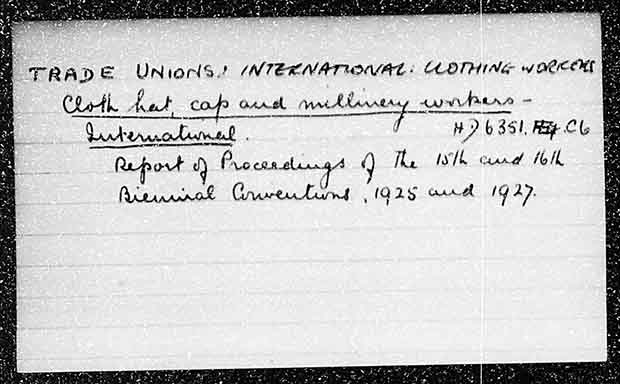 TRADE UNIONS: INTERNATIONAL: CLOTHING WORKERS
Cloth hat, cap and millinery workers -
International. HD 6351. .C6
Report of Proceedings of the 15th and 16th
Biennial Conventions, 1925 and 1927.